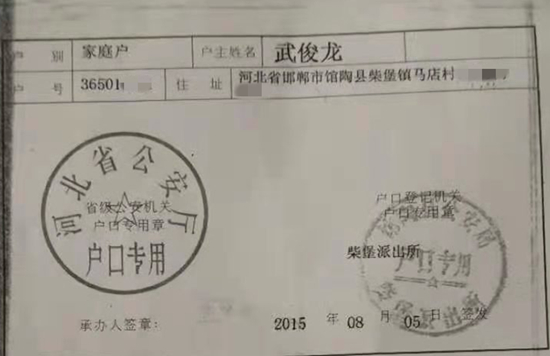 户 别 家庭户 户主姓名 武俊龙
户 号 36501 住 址 河北省邯郸市馆陶县柴堡镇马店村
河北省公安厅
省级公安机关
户口专用章
户口专用
户口登记机关
户口专用章
户口专用
柴堡派出所
承办人签章: 2015 年 08 月 05 日 签发